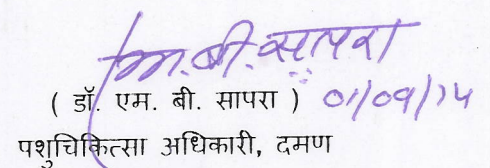 एम.बी.सापरा
( डॉ. एम. बी. सापरा ) 01/09/14
पशुचिकित्सा अधिकारी, दमण